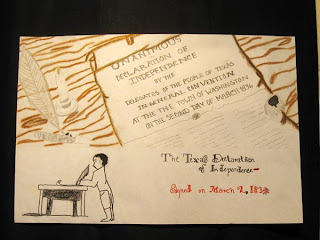 UNANIMOUS
DECLARATION OF
INDEPENDENCE
BY THE
DELEGATES OF THE PEOPLE OF TEXAS
IN GENERAL CONVENTION
AT THE THE TOWN OF WASHINGTON
ON THE SECOND DAY OF MARCH 1836
The Texas Declaration
of Independence
Signed on March 2, 1836